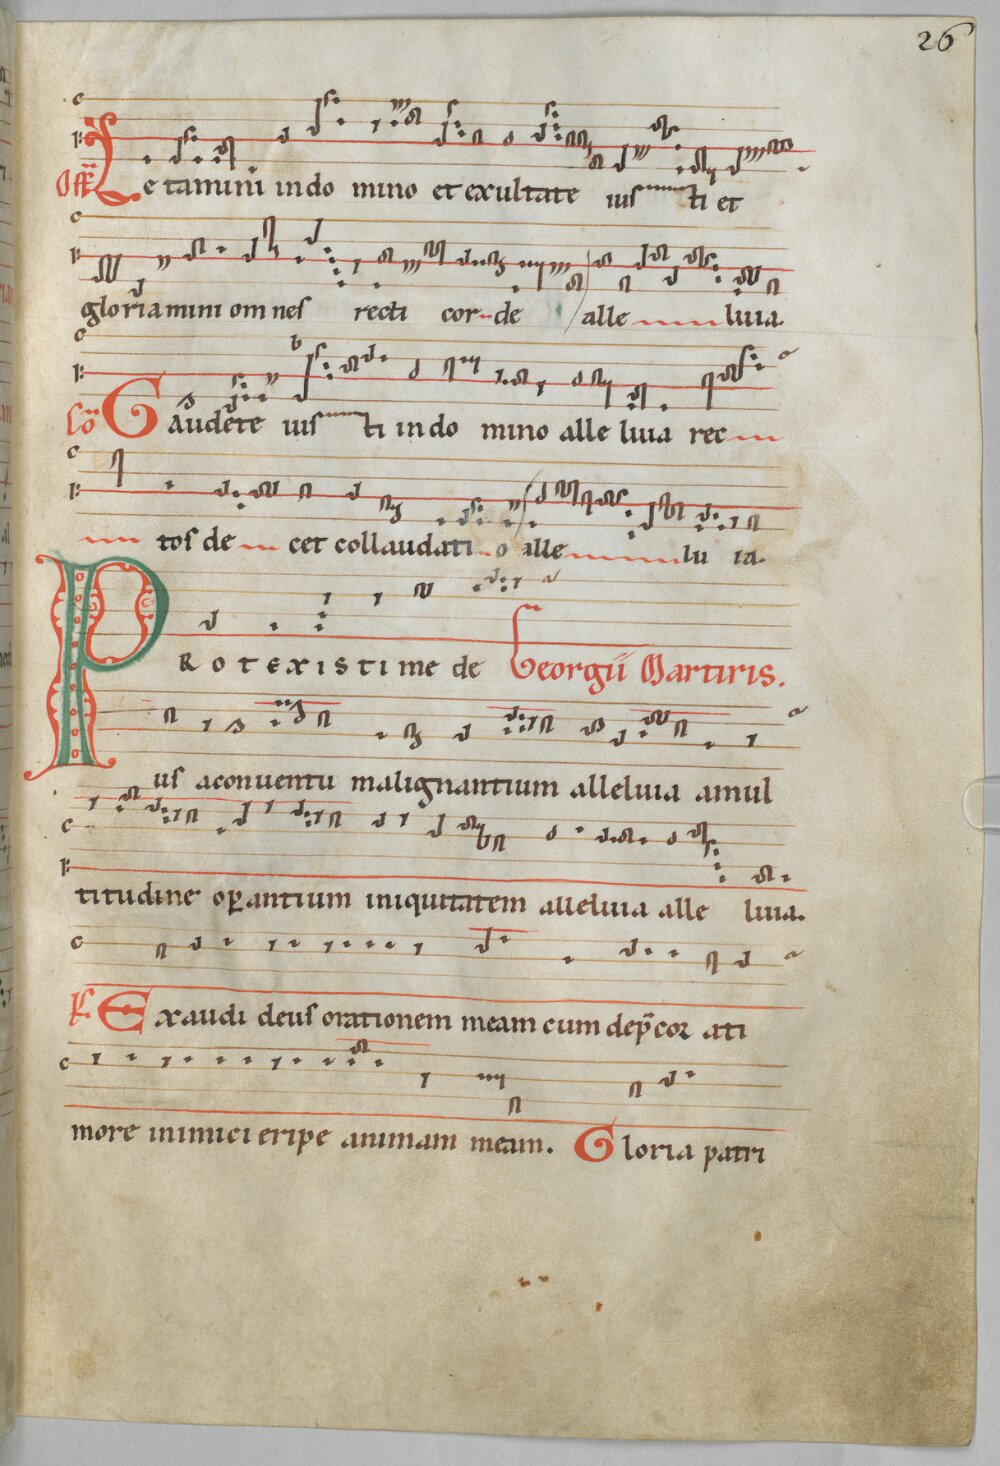 26
Off Letamini in do mino et exultate ius ti et
gloriamini om nes recti cor de alle luia.
Co Gaudete ius ti in do mino alle luia rec
tos de cet collaudati o alle lu ia.
PROTEXISTI me de Georgii Martiris.
us aconuentu malignantium alleluia amul
titudine operantium iniquitatem alleluia alle luia.
Ps Exaudi deus orationem meam cum dep̄cor ati
more inimici eripe animam meam. Gloria patri